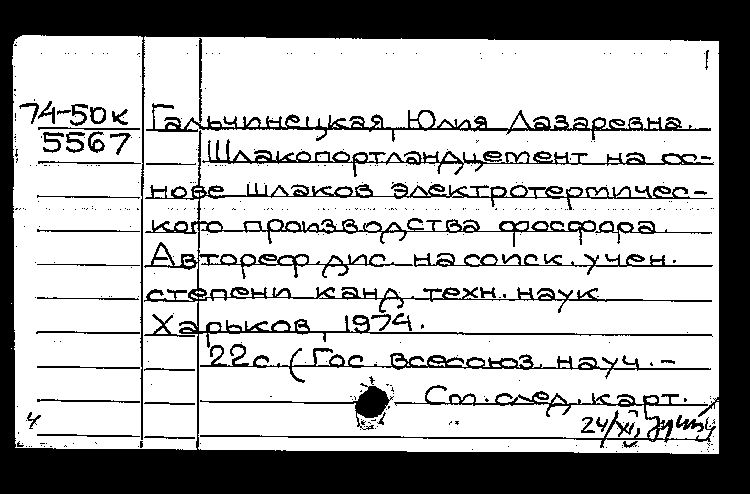 1
74-50к Гальчинецкая, Юлия Лазаревна.
5567 Шлакопортландцемент на ос-
нове шлаков электротермичес-
кого производства фосфора.
Автореф. дис. на соиск. учен.
степени канд. техн. наук
Харьков, 1974.
22с. (Гос. всесоюз. науч.-
См. след. карт.
4 24/XI